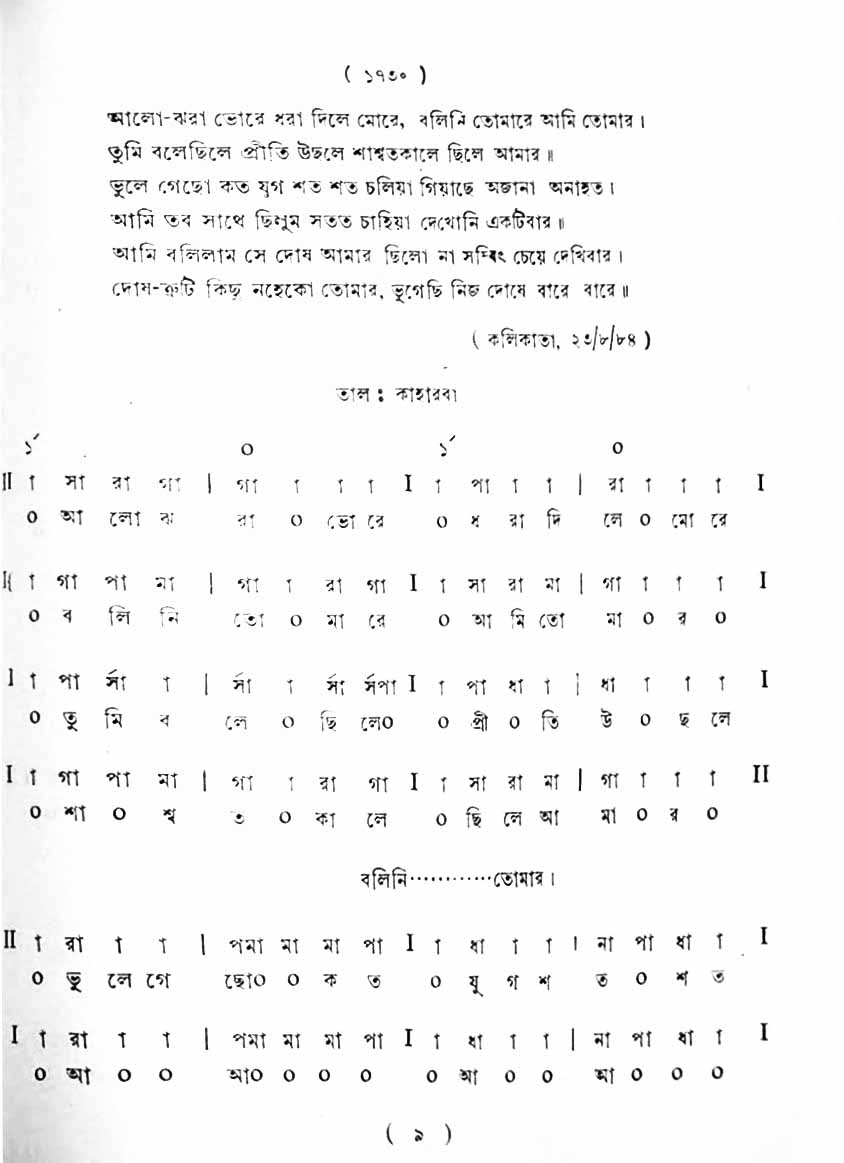 ( ১৭৩০ )
আলো-ঝরা ভোরে ধরা দিলে মোরে, বলিনি তোমারে আমি তোমার ।
তুমি বলেছিলে প্রীতি উছলে শাশ্বতকালে ছিলে আমার ॥
ভুলে গেছো কত যুগ শত শত চলিয়া গিয়াছে অজানা অনাহত ।
আমি তব সাথে ছিলুম সতত চাহিয়া দেখোনি একটিবার ॥
আমি বলিলাম সে দোষ আমার ছিলো না সম্বিৎ চেয়ে দেখিবার ।
দোষ-ত্রুটি কিছু নহেকো তোমার, ভুগেছি নিজ দোষে বারে বারে ॥
( কলিকাতা, ২৩/৮/৮৪ )
তাল : কাহারবা
১´ ০ ১´ ০
II া সা রা গা | গা া া া I া পা া া | রা া া া I
০ আ লো ঝ রা ০ ভো রে ০ ধ রা দি লে ০ মো রে
I{ া গা পা মা | গা া রা গা I া সা রা মা | গা া া া I
০ ব লি নি তো ০ মা রে ০ আ মি তো মা ০ র ০
I া পা র্সা া | র্সা া র্সা র্সপা I া পা ধা া | ধা া া া I
০ তু মি ব লে ০ ছি লে০ ০ প্রী ০ তি উ ০ ছ লে
I া গা পা মা | গা া রা গা I া সা রা মা | গা া া া II
০ শা ০ শ্ব ত ০ কা লে ০ ছি লে আ মা ০ র ০
বলিনি············তোমার ।
II া রা া া | পমা মা মা পা I া ধা া া । না পা ধা া I
০ ভু লে গে ছো০ ০ ক ত ০ যু গ শ ত ০ শ ত
I া রা া া | পমা মা মা পা I া ধা া া | না পা ধা া I
০ আ ০ ০ আ০ ০ ০ ০ ০ আ ০ ০ আ ০ ০ ০
( ৯ )